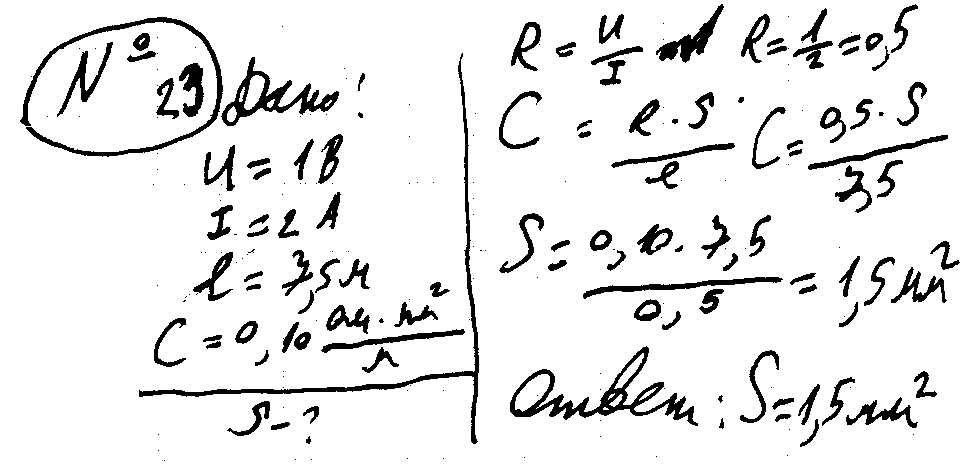 № 23 Дано:
U = 1 В
I = 2 А
l = 7,5 м
C = 0,10 ом·мм²/м
S - ?
R = U/I R = 1/2 = 0,5
C = R·S/l C = 0,5·S/7,5
S = 0,10·7,5/0,5 = 1,5 мм²
Ответ: S = 1,5 мм²